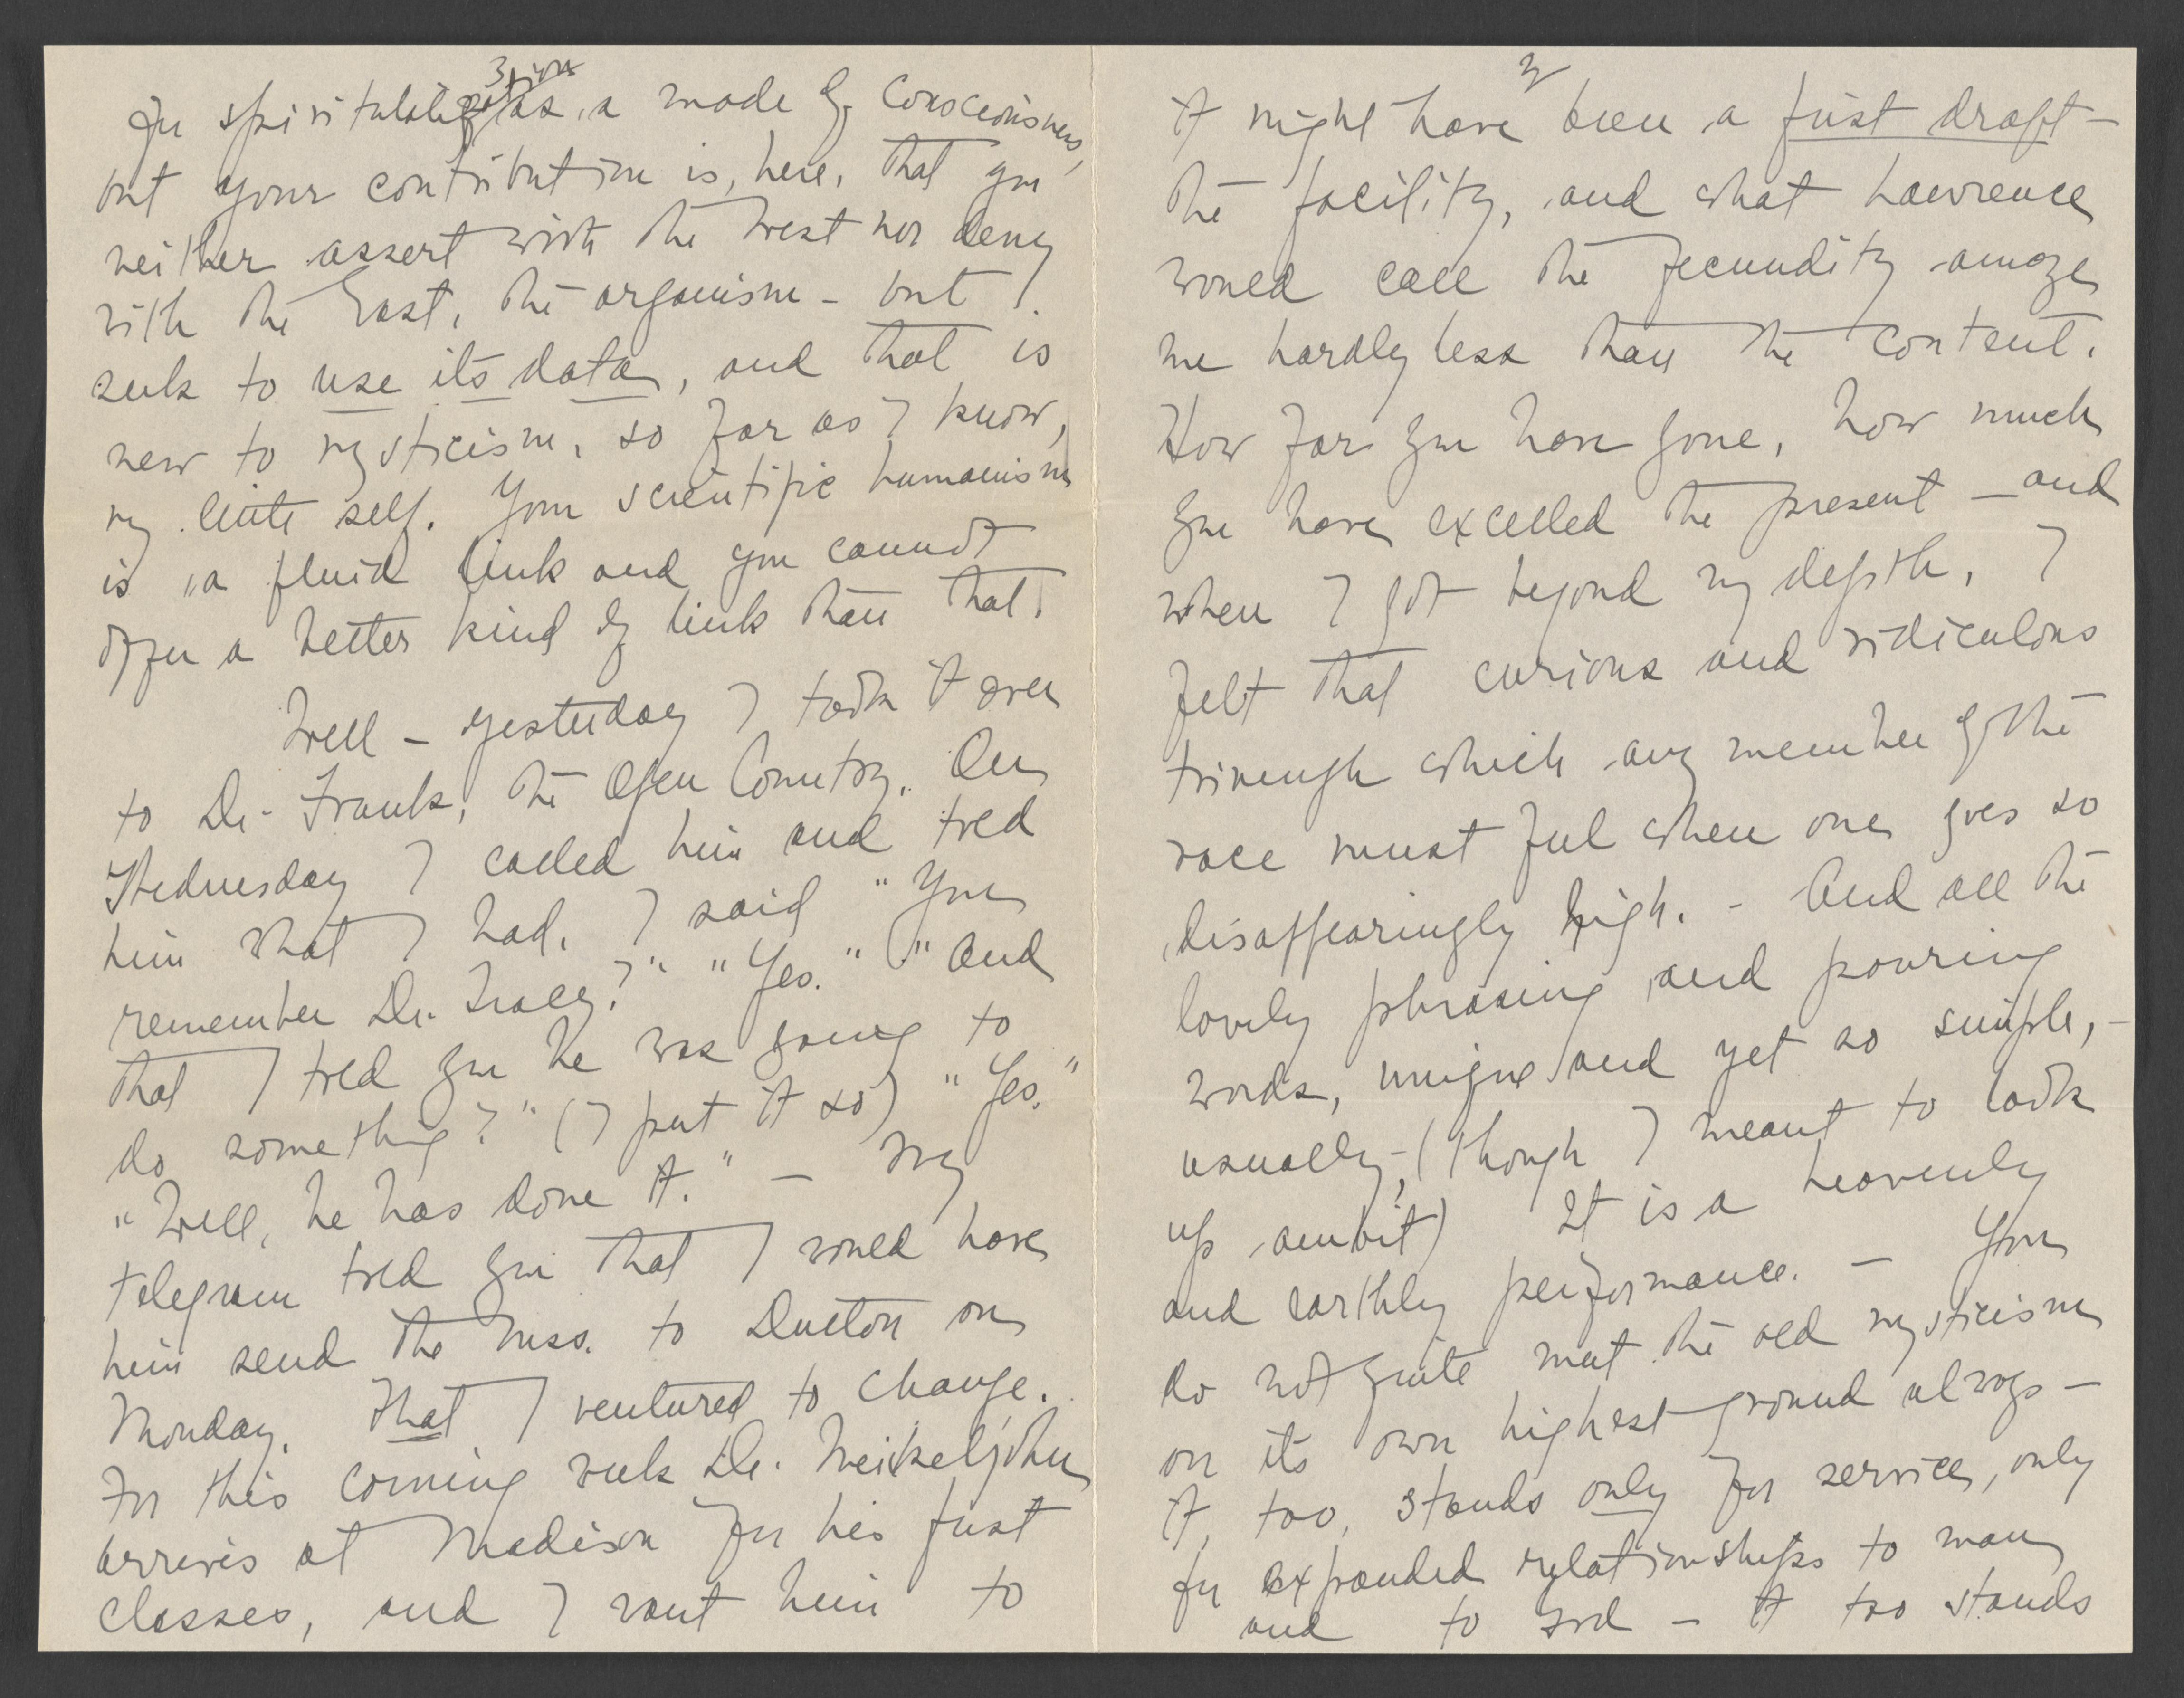 3
for spiritualization as a mode of consciousness,
but your contribution is, here, that you
neither assert with the West nor deny
with the East, the organism – but
seek to use its data, and that is
new to mysticism, so far as I know,
my little self. Your scientific humanism
is a fluid link and you cannot
offer a better kind of link than that.
Well – yesterday I took it over
to Dr. Frank, the Open Country. On
Wednesday I called him and told
him what I had. I said "You
remember Dr. Tracy?" "Yes." "And
that I told you he was going to
do something?" (I put it so) "Yes."
"Well, he has done it." – My
telegram told you that I would have
him send the mss. to Dutton on
Monday. That I ventured to change.
For this coming week Dr. Meikeljohn
arrives at Madison for his first
classes, and I want him to
2
It might have been a first draft –
the facility, and what Lawrence
would call the fecundity amaze
me hardly less than the content.
How far you have gone, how much
you have excelled the present – and
when I got beyond my depth, I
felt that curious and ridiculous
triumph which any member of the
race must feel when one goes so
disappearingly high. – And all the
lovely phrasing and pouring
words, unique and yet so simple, –
usually, (though I meant to look
up ambit) It is a heavenly
and earthly performance. – You
do not quite meet the old mysticism
on its own highest ground always –
it, too, stands only for service, only
for expanded relationships to man
and to God – it too stands